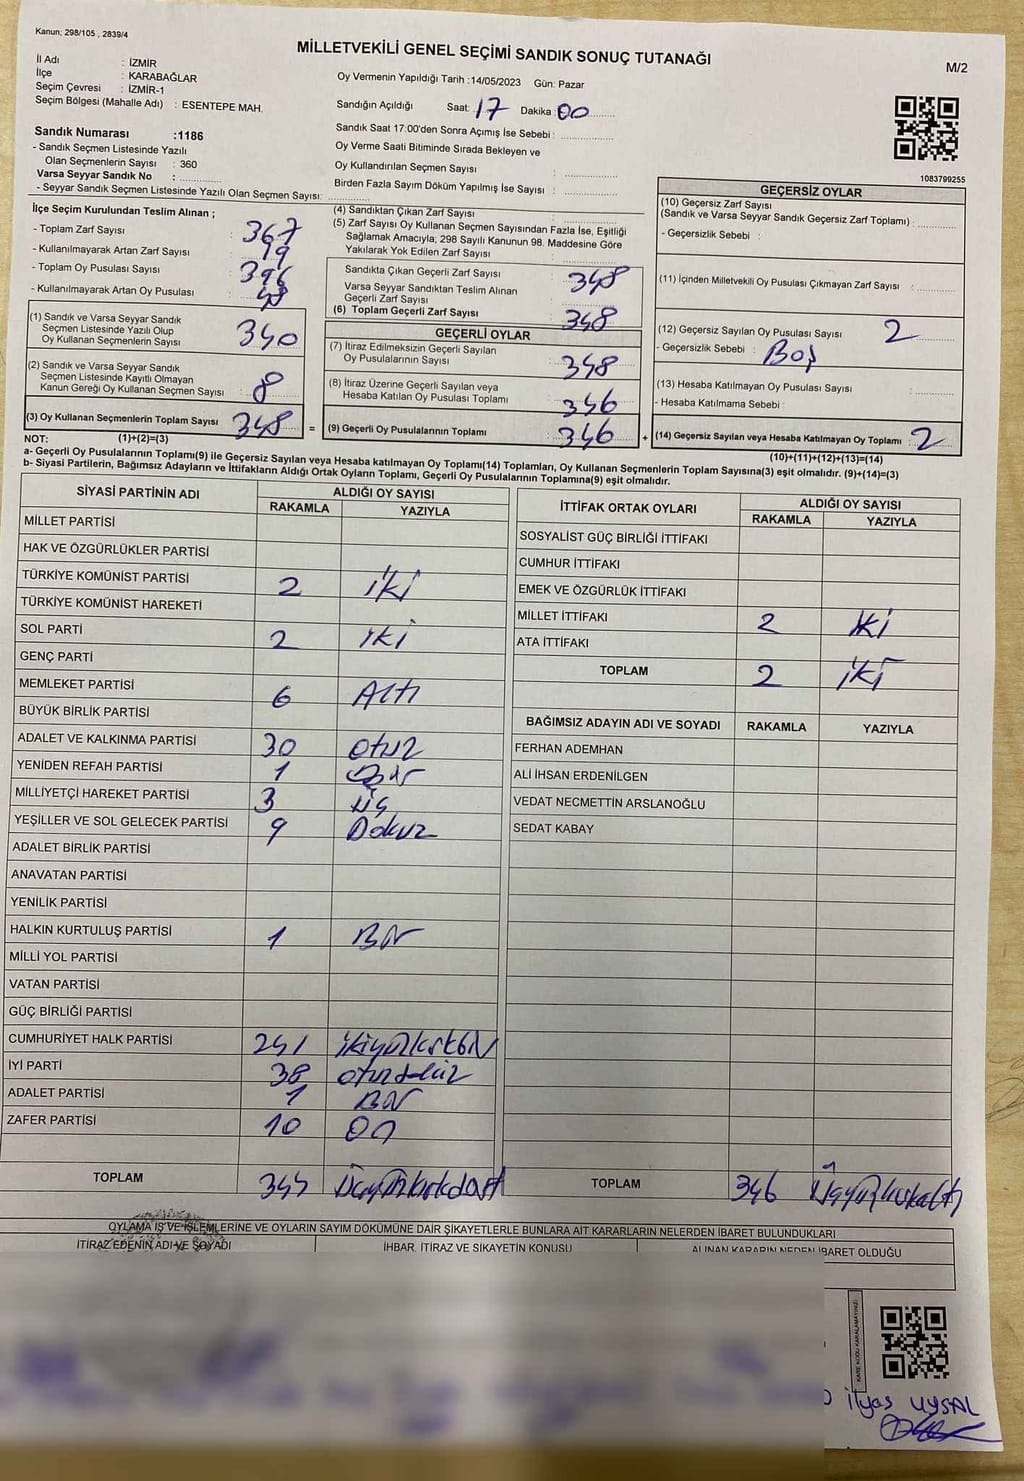 Kanun; 298/105 , 2839/4
MİLLETVEKİLİ GENEL SEÇİMİ SANDIK SONUÇ TUTANAĞI
M/2
İl Adı : İZMİR
İlçe : KARABAĞLAR
Seçim Çevresi : İZMİR-1
Seçim Bölgesi (Mahalle Adı) : ESENTEPE MAH.
Oy Vermenin Yapıldığı Tarih :14/05/2023 Gün: Pazar
Sandığın Açıldığı Saat: 17 Dakika : 00
Sandık Saat 17:00'den Sonra Açımış İse Sebebi :
Oy Verme Saati Bitiminde Sırada Bekleyen ve
Oy Kullandırılan Seçmen Sayısı :
Birden Fazla Sayım Döküm Yapılmış İse Sayısı :
Sandık Numarası :1186
- Sandık Seçmen Listesinde Yazılı
Olan Seçmenlerin Sayısı : 360
Varsa Seyyar Sandık No :
- Seyyar Sandık Seçmen Listesinde Yazılı Olan Seçmen Sayısı:
1083799255
İlçe Seçim Kurulundan Teslim Alınan ;
- Toplam Zarf Sayısı : 367
- Kullanılmayarak Artan Zarf Sayısı : 19
- Toplam Oy Pusulası Sayısı : 396
- Kullanılmayarak Artan Oy Pusulası : 48
(1) Sandık ve Varsa Seyyar Sandık
Seçmen Listesinde Yazılı Olup
Oy Kullanan Seçmenlerin Sayısı : 340
(2) Sandık ve Varsa Seyyar Sandık
Seçmen Listesinde Kayıtlı Olmayan
Kanun Gereği Oy Kullanan Seçmen Sayısı : 8
(3) Oy Kullanan Seçmenlerin Toplam Sayısı : 348 =
(4) Sandıktan Çıkan Zarf Sayısı :
(5) Zarf Sayısı Oy Kullanan Seçmen Sayısından Fazla İse, Eşitliği
Sağlamak Amacıyla; 298 Sayılı Kanunun 98. Maddesine Göre
Yakılarak Yok Edilen Zarf Sayısı :
Sandıkta Çıkan Geçerli Zarf Sayısı : 348
Varsa Seyyar Sandıktan Teslim Alınan
Geçerli Zarf Sayısı :
(6) Toplam Geçerli Zarf Sayısı : 348
GEÇERLİ OYLAR
(7) İtiraz Edilmeksizin Geçerli Sayılan
Oy Pusulalarının Sayısı : 348
(8) İtiraz Üzerine Geçerli Sayılan veya
Hesaba Katılan Oy Pusulası Toplamı : 346
(9) Geçerli Oy Pusulalarının Toplamı : 346 +
GEÇERSİZ OYLAR
(10) Geçersiz Zarf Sayısı
(Sandık ve Varsa Seyyar Sandık Geçersiz Zarf Toplamı) :
- Geçersizlik Sebebi :
(11) İçinden Milletvekili Oy Pusulası Çıkmayan Zarf Sayısı :
(12) Geçersiz Sayılan Oy Pusulası Sayısı : 2
- Geçersizlik Sebebi : Boş
(13) Hesaba Katılmayan Oy Pusulası Sayısı :
- Hesaba Katılmama Sebebi :
(14) Geçersiz Sayılan veya Hesaba Katılmayan Oy Toplamı : 2
NOT: (1)+(2)=(3)
(10)+(11)+(12)+(13)=(14)
a- Geçerli Oy Pusulalarının Toplamı(9) ile Geçersiz Sayılan veya Hesaba katılmayan Oy Toplamı(14) Toplamları, Oy Kullanan Seçmenlerin Toplam Sayısına(3) eşit olmalıdır. (9)+(14)=(3)
b- Siyasi Partilerin, Bağımsız Adayların ve İttifakların Aldığı Ortak Oyların Toplamı, Geçerli Oy Pusulalarının Toplamına(9) eşit olmalıdır.
SİYASİ PARTİNİN ADI ALDIĞI OY SAYISI
RAKAMLA YAZIYLA
MİLLET PARTİSİ
HAK VE ÖZGÜRLÜKLER PARTİSİ
TÜRKİYE KOMÜNİST PARTİSİ 2 iki
TÜRKİYE KOMÜNİST HAREKETİ
SOL PARTİ 2 iki
GENÇ PARTİ
MEMLEKET PARTİSİ 6 Altı
BÜYÜK BİRLİK PARTİSİ
ADALET VE KALKINMA PARTİSİ 30 otuz
YENİDEN REFAH PARTİSİ 1 Bir
MİLLİYETÇİ HAREKET PARTİSİ 3 üç
YEŞİLLER VE SOL GELECEK PARTİSİ 9 Dokuz
ADALET BİRLİK PARTİSİ
ANAVATAN PARTİSİ
YENİLİK PARTİSİ
HALKIN KURTULUŞ PARTİSİ 1 Bir
MİLLİ YOL PARTİSİ
VATAN PARTİSİ
GÜÇ BİRLİĞİ PARTİSİ
CUMHURİYET HALK PARTİSİ 241 ikiyüzkırkbir
İYİ PARTİ 38 otuzsekiz
ADALET PARTİSİ 1 Bir
ZAFER PARTİSİ 10 On
TOPLAM 344 Üçyüzkırkdört
İTTİFAK ORTAK OYLARI ALDIĞI OY SAYISI
RAKAMLA YAZIYLA
SOSYALİST GÜÇ BİRLİĞİ İTTİFAKI
CUMHUR İTTİFAKI
EMEK VE ÖZGÜRLÜK İTTİFAKI
MİLLET İTTİFAKI 2 iki
ATA İTTİFAKI
TOPLAM 2 iki
BAĞIMSIZ ADAYIN ADI VE SOYADI RAKAMLA YAZIYLA
FERHAN ADEMHAN
ALİ İHSAN ERDENİLGEN
VEDAT NECMETTİN ARSLANOĞLU
SEDAT KABAY
TOPLAM 346 Üçyüzkırkaltı
OYLAMA İŞ VE İŞLEMLERİNE VE OYLARIN SAYIM DÖKÜMÜNE DAİR ŞİKAYETLERLE BUNLARA AİT KARARLARIN NELERDEN İBARET BULUNDUKLARI
İTİRAZ EDENİN ADI VE SOYADI İHBAR, İTİRAZ VE ŞİKAYETİN KONUSU ALINAN KARARIN NEDEN İBARET OLDUĞU
KARE KODU KARALAMAYINIZ!
ilyas UYSAL